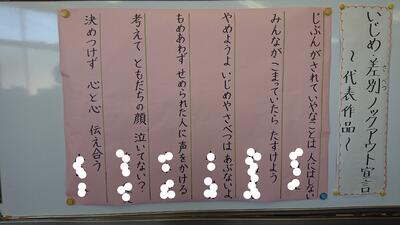 いじめ 差別 ノックアウト宣言
さべつ
～代表作品～
じぶんがされていやなことは 人にはしない
みんなが こまっていたら たすけよう
やめようよ いじめやさべつは あぶないよ
もめあわず せめられた人に 声をかける
考えて ともだちの顔 泣いてない?
決めつけず 心と心 伝え合う